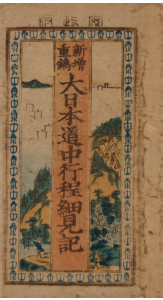 新増
重鐫
大日本道中行程細見記